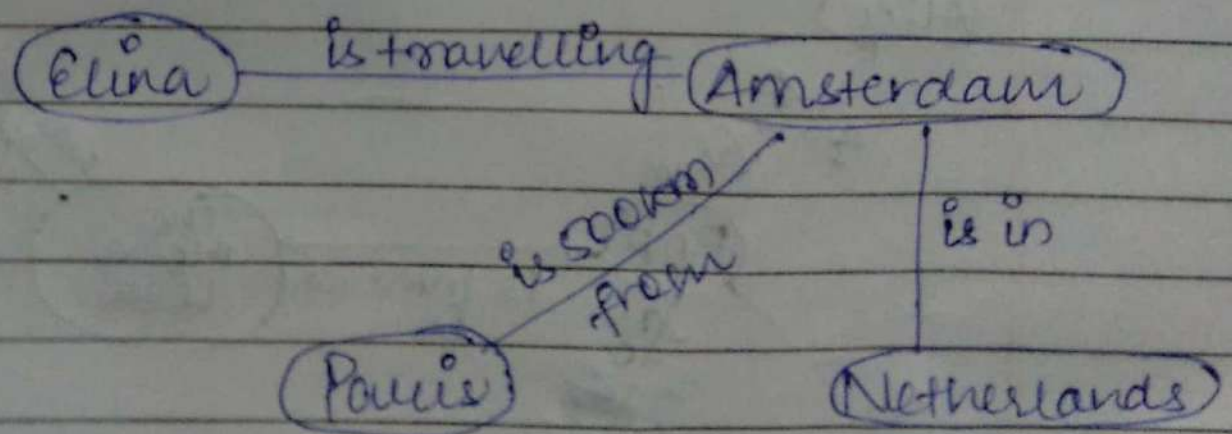 Elina is travelling Amsterdam
is 500km
from
is in
Paris Netherlands